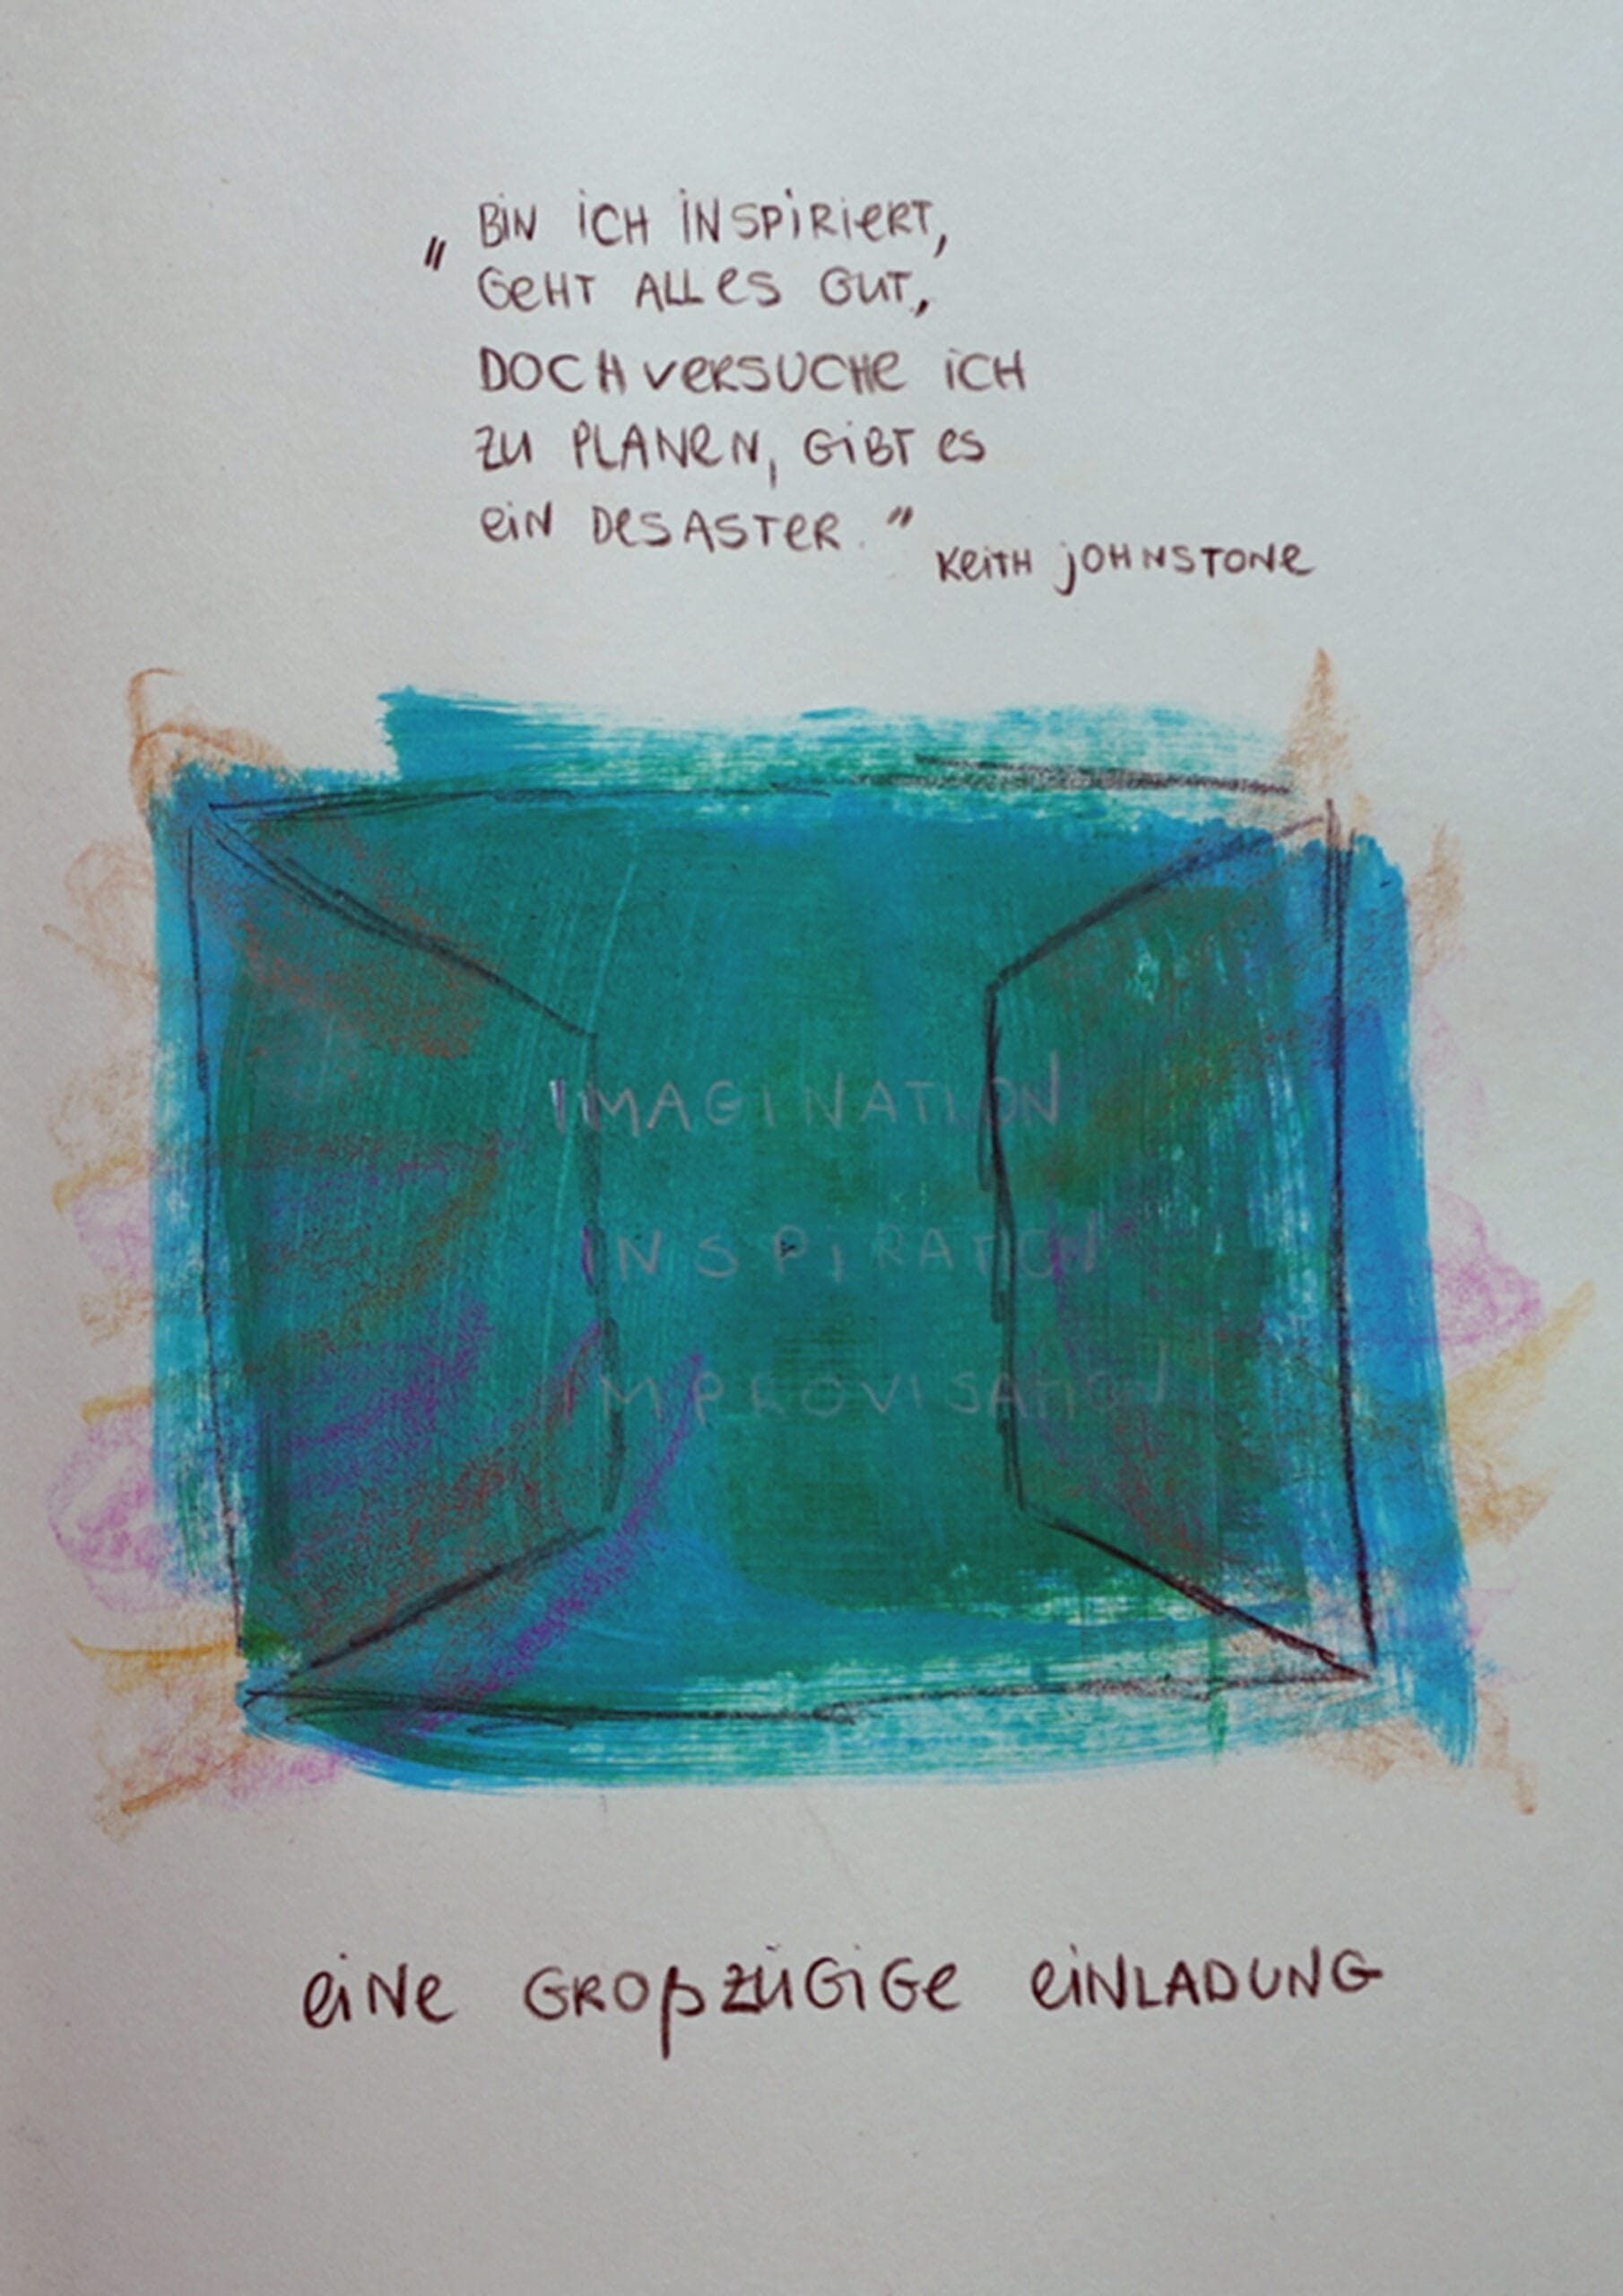 „BIN ICH INSPIRIERT,
GEHT ALLES GUT,
DOCH VERSUCHE ICH
ZU PLANEN, GIBT ES
EIN DESASTER."
KEITH JOHNSTONE
IMAGINATION
INSPIRATION
IMPROVISATION
EINE GROßZÜGIGE EINLADUNG